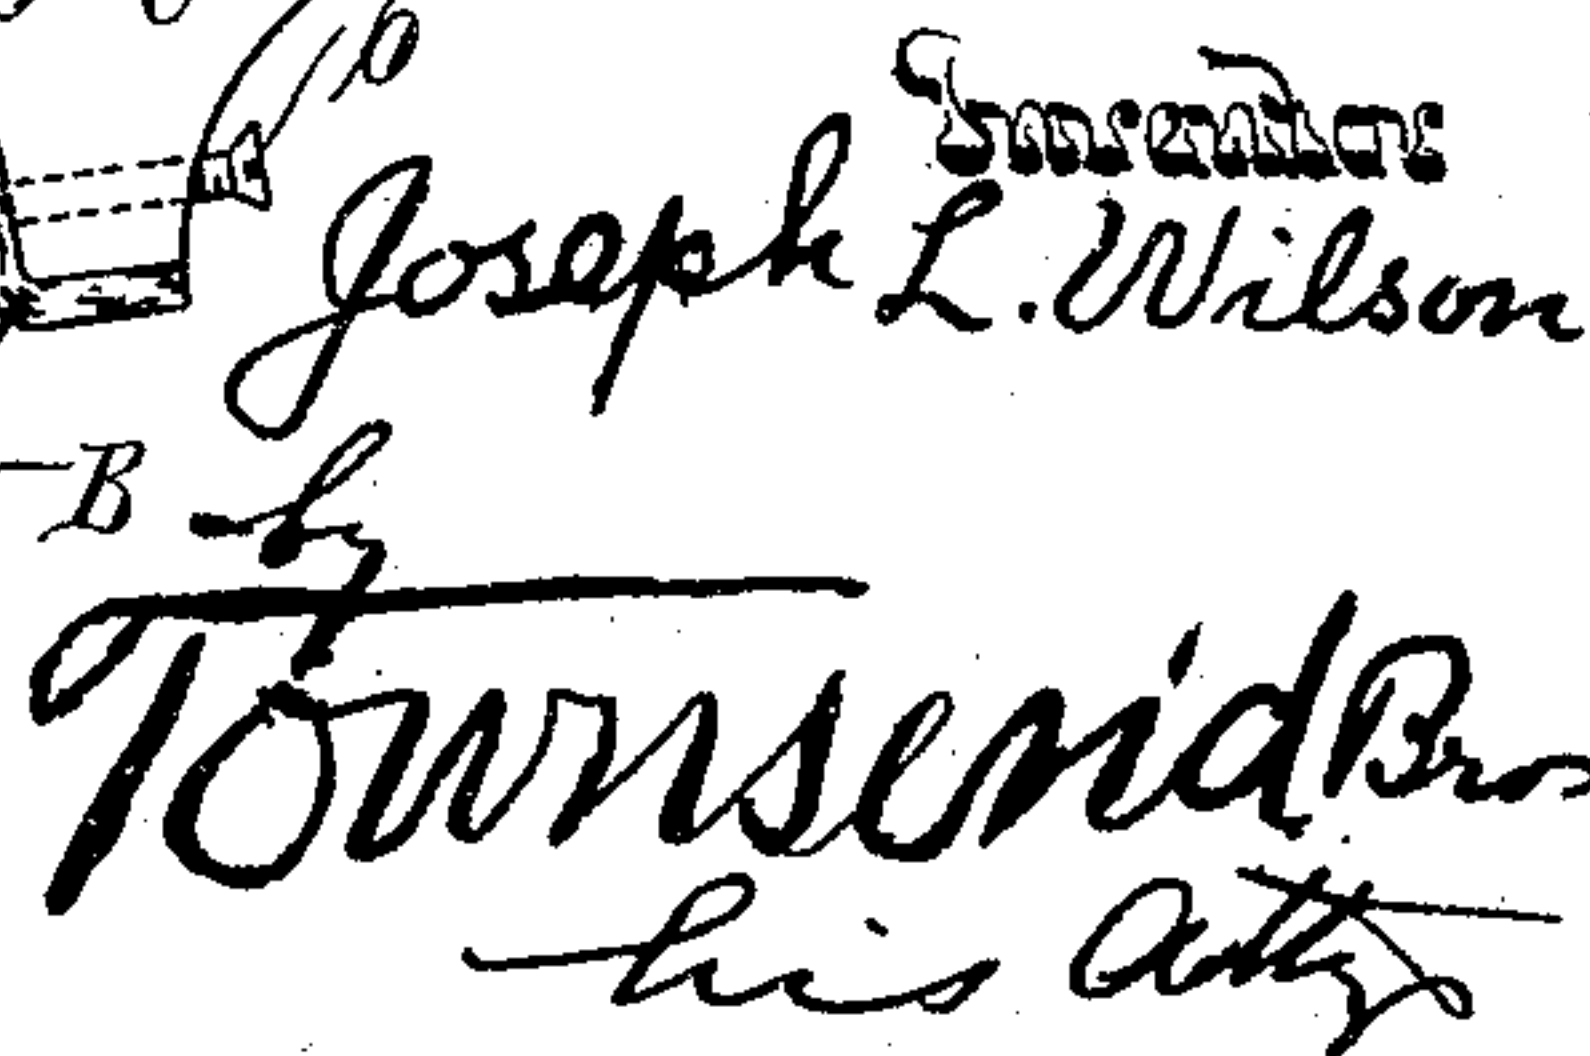 b
Inventor
Joseph L. Wilson
B
by
Townsend Bros
his Atty